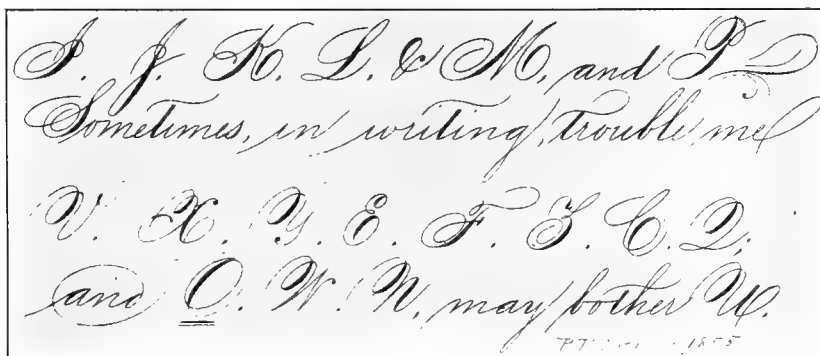 I. J. K. L. & M, and P
Sometimes, in writing, trouble me
V. X. Y. E. F. Z. C. Q.
and O. W. N, may bother U.
1855